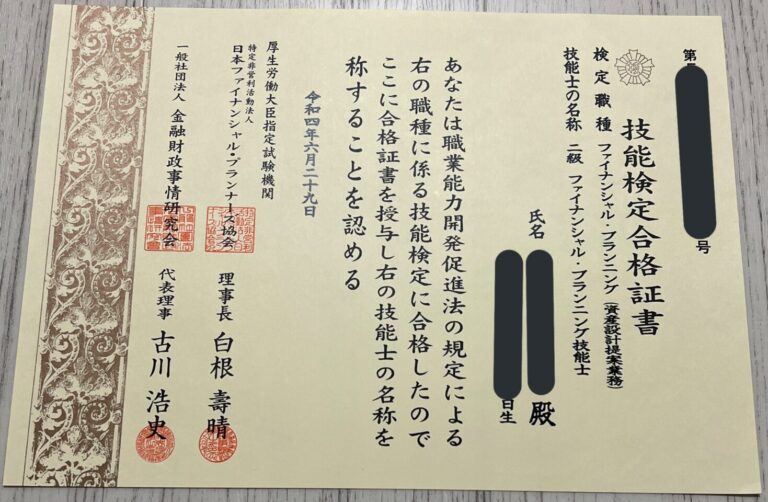 第
号
技能検定合格証書
検定職種 ファイナンシャル・プランニング(資産設計提案業務)
技能士の名称 二級 ファイナンシャル・プランニング技能士
氏名 殿
日生
あなたは職業能力開発促進法の規定による
右の職種に係る技能検定に合格したので
ここに合格証書を授与し右の技能士の名称を
称することを認める
令和四年六月二十九日
厚生労働大臣指定試験機関
特定非営利活動法人
日本ファイナンシャル・プランナーズ協会 理事長 白根壽晴
一般社団法人 金融財政事情研究会 代表理事 古川浩史